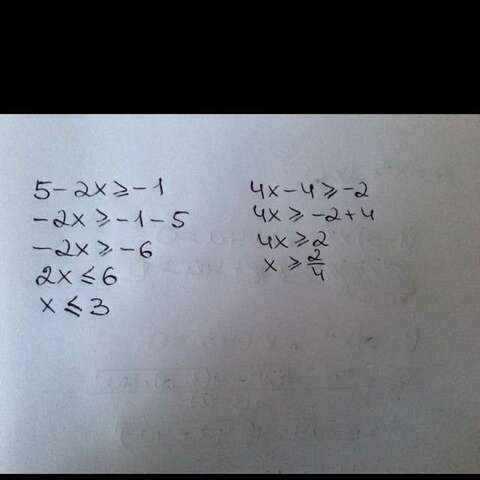 5-2x⩾-1
-2x⩾-1-5
-2x⩾-6
2x≤6
x≤3
4x-4⩾-2
4x⩾-2+4
4x⩾2
x⩾2/4